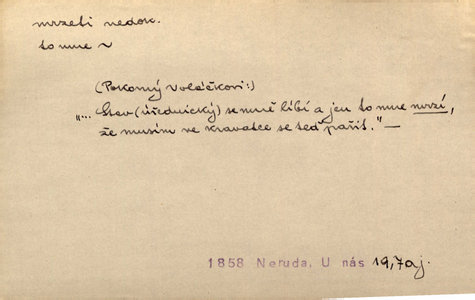 mrzeti nedok.
to mne ~
(Pokorný Voláčkovi:)
"... Stav (úřednický) se mně líbí a jen to mne mrzí,
že musím ve kravatce se teď pařit." —
1858 Neruda. U nás 19,7aj.